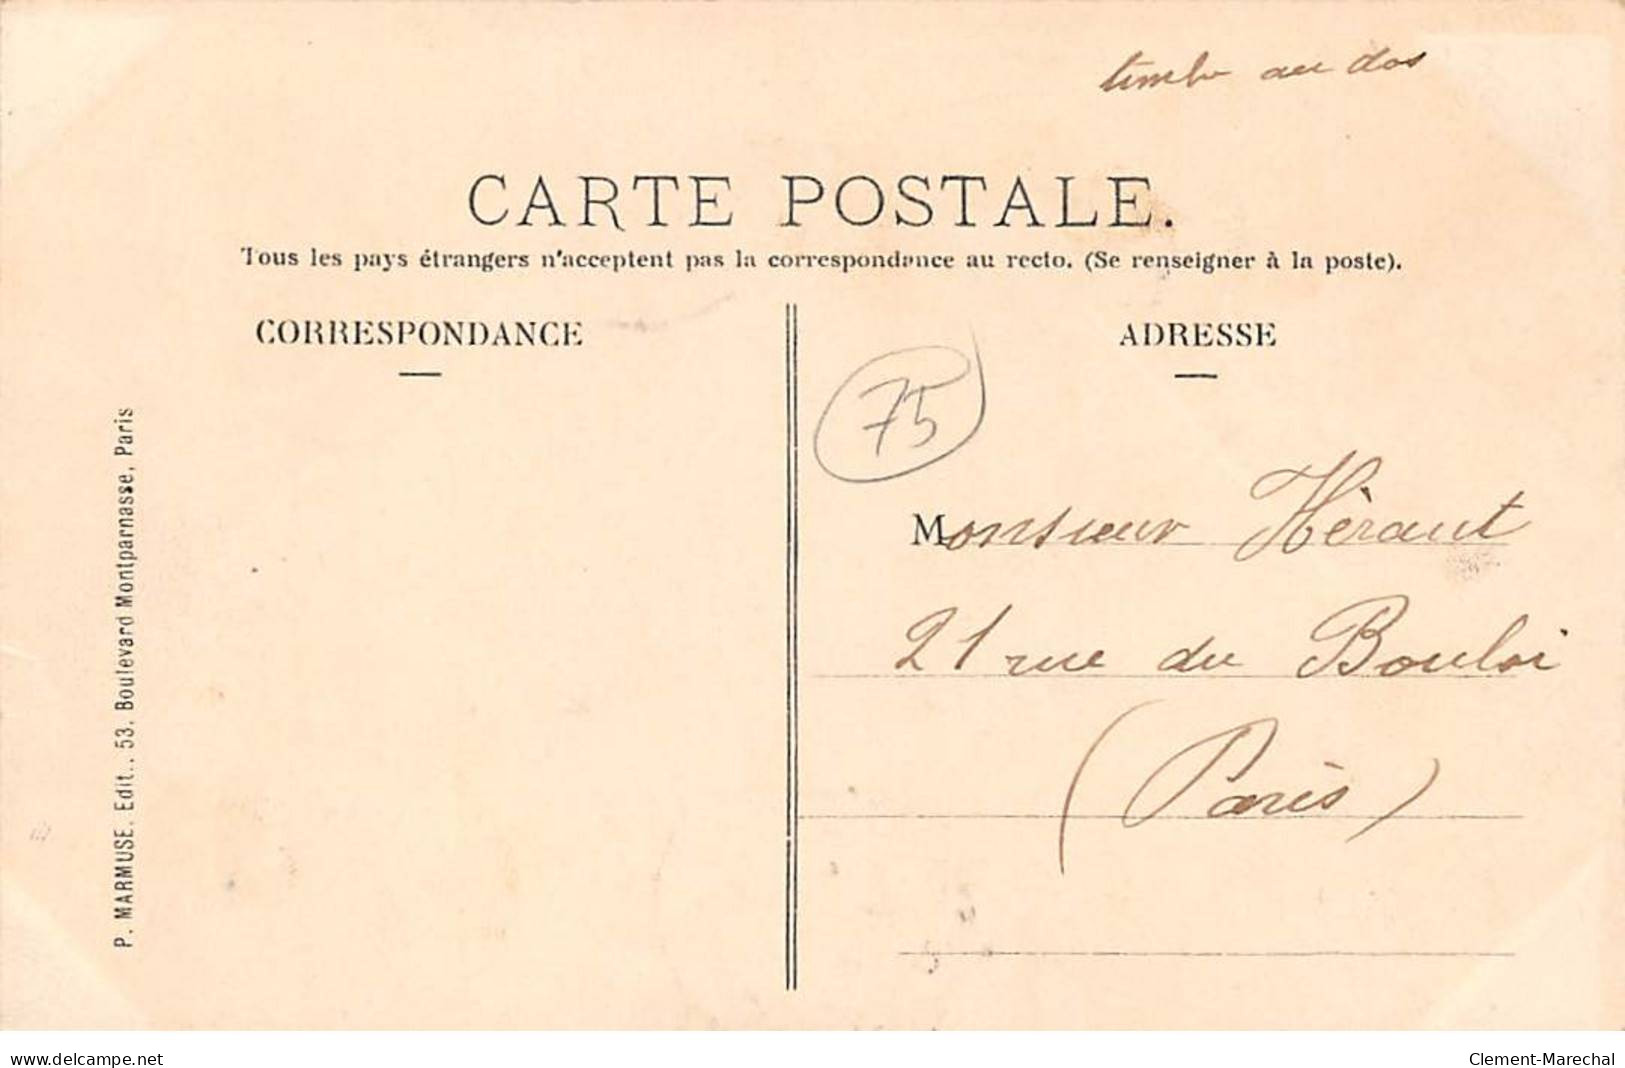 timbre au dos
CARTE POSTALE.
Tous les pays étrangers n'acceptent pas la correspondance au recto. (Se renseigner à la poste).
CORRESPONDANCE
ADRESSE
75
Monsieur Hèraut
21 rue du Bouloi
(Paris)
P. MARMUSE. Edit., 53. Boulevard Montparnasse, Paris
www.delcampe.net
Clement-Marechal